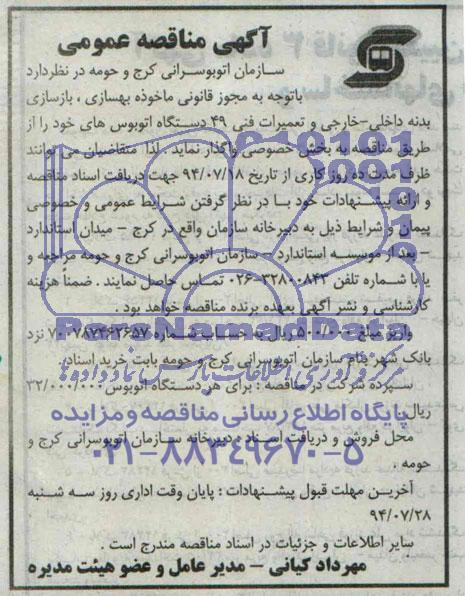 آگهی مناقصه عمومی
سازمان اتوبوسرانی کرج و حومه در نظردارد
باتوجه به مجوز قانونی ماخوذه بهسازی ، بازسازی
بدنه داخلی-خارجی و تعمیرات فنی ۴۹ دستگاه اتوبوس های خود را از
طریق مناقصه به بخش خصوصی واگذار نماید . لذا متقاضیان می توانند
ظرف مدت ده روز کاری از تاریخ ۹۴/۰۷/۱۸ جهت دریافت اسناد مناقصه
و ارائه پیشنهادات خود با در نظر گرفتن شرایط عمومی و خصوصی
پیمان و شرایط ذیل به دبیرخانه سازمان واقع در کرج – میدان استاندارد
– بعد از موسسه استاندارد – سازمان اتوبوسرانی کرج و حومه مراجعه و
یا با شماره تلفن ۳۲۸۰۰۸۴۳-۰۲۶ تماس حاصل نمایند . ضمناً هزینه
کارشناسی و نشر آگهی بعهده برنده مناقصه خواهد بود .
ParsNamadData
واریز مبلغ ۵۰۰/۰۰۰ ریال به حساب شماره ۷۰۰۷۸۷۴۶۲۶۵۷ نزد
بانک شهر بنام سازمان اتوبوسرانی کرج و حومه بابت خرید اسناد.
سپرده شرکت در مناقصه : برای هر دستگاه اتوبوس ۳۲/۰۰۰/۰۰۰
ریال
پایگاه اطلاع رسانی مناقصه و مزایده
محل فروش و دریافت اسناد : دبیرخانه سازمان اتوبوسرانی کرج و
حومه .
۰۲۱-۸۸۳۴۹۶۷۰-۵
آخرین مهلت قبول پیشنهادات : پایان وقت اداری روز سه شنبه
۹۴/۰۷/۲۸
سایر اطلاعات و جزئیات در اسناد مناقصه مندرج است .
مهرداد کیانی – مدیر عامل و عضو هیئت مدیره